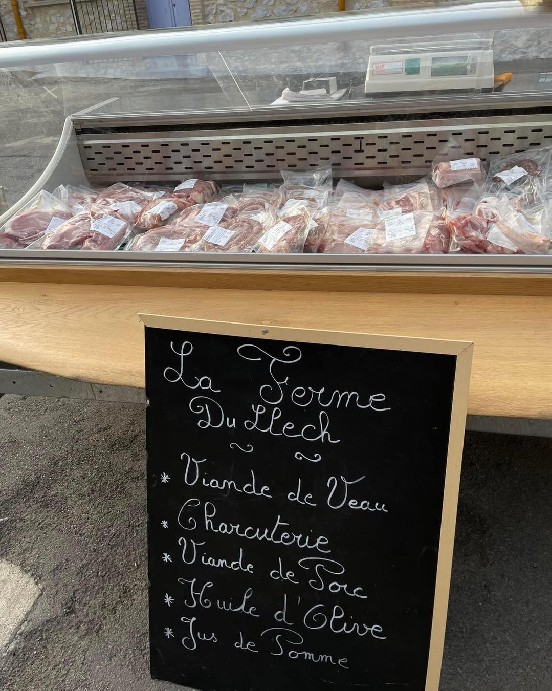 La Ferme
Du Llech
* Viande de Veau
* Charcuterie
* Viande de Porc
* Huile d'Olive
* Jus de Pomme